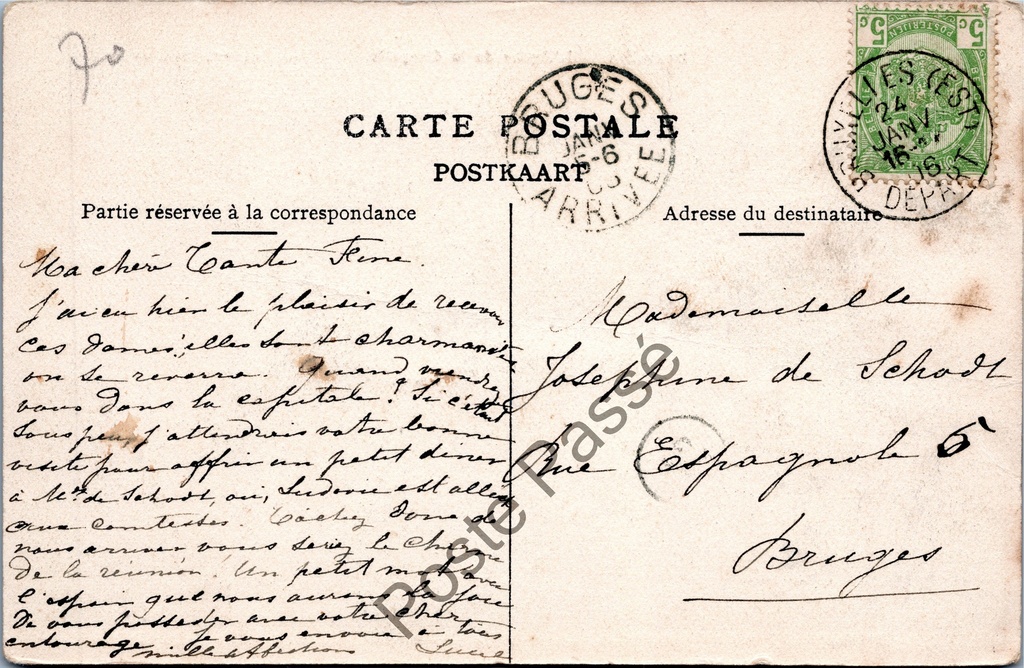 70
5 c 5 c
POSTERIJEN
BRUXELLES (EST)
24
JANV
16
06
DÉPART
BRUGES
JANV
5-6
ARRIVEE
CARTE POSTALE
POSTKAART
Partie réservée à la correspondance
Adresse du destinataire
Ma chère Tante Fine.
J'ai eu hier le plaisir de recevoir
ces dames, elles sont charmantes
on se reverra. Quand viendrez
vous dans la capitale? Si c'était
sous peu, j'attendrais votre bonne
visite pour offrir un petit diner
à Mr. de Schodt, où, est allée
aux comtesses. Tâchez donc de
nous arriver vous seriez le charme
de la réunion! Un petit mot avec
l'espoir que nous aurons la joie
de vous posséder avec votre cher
entourage je vous envoie à tous
mille affections Lucie
Mademoiselle
Joséphine de Schodt
Rue Espagnole 5
Bruges
Poste Passé